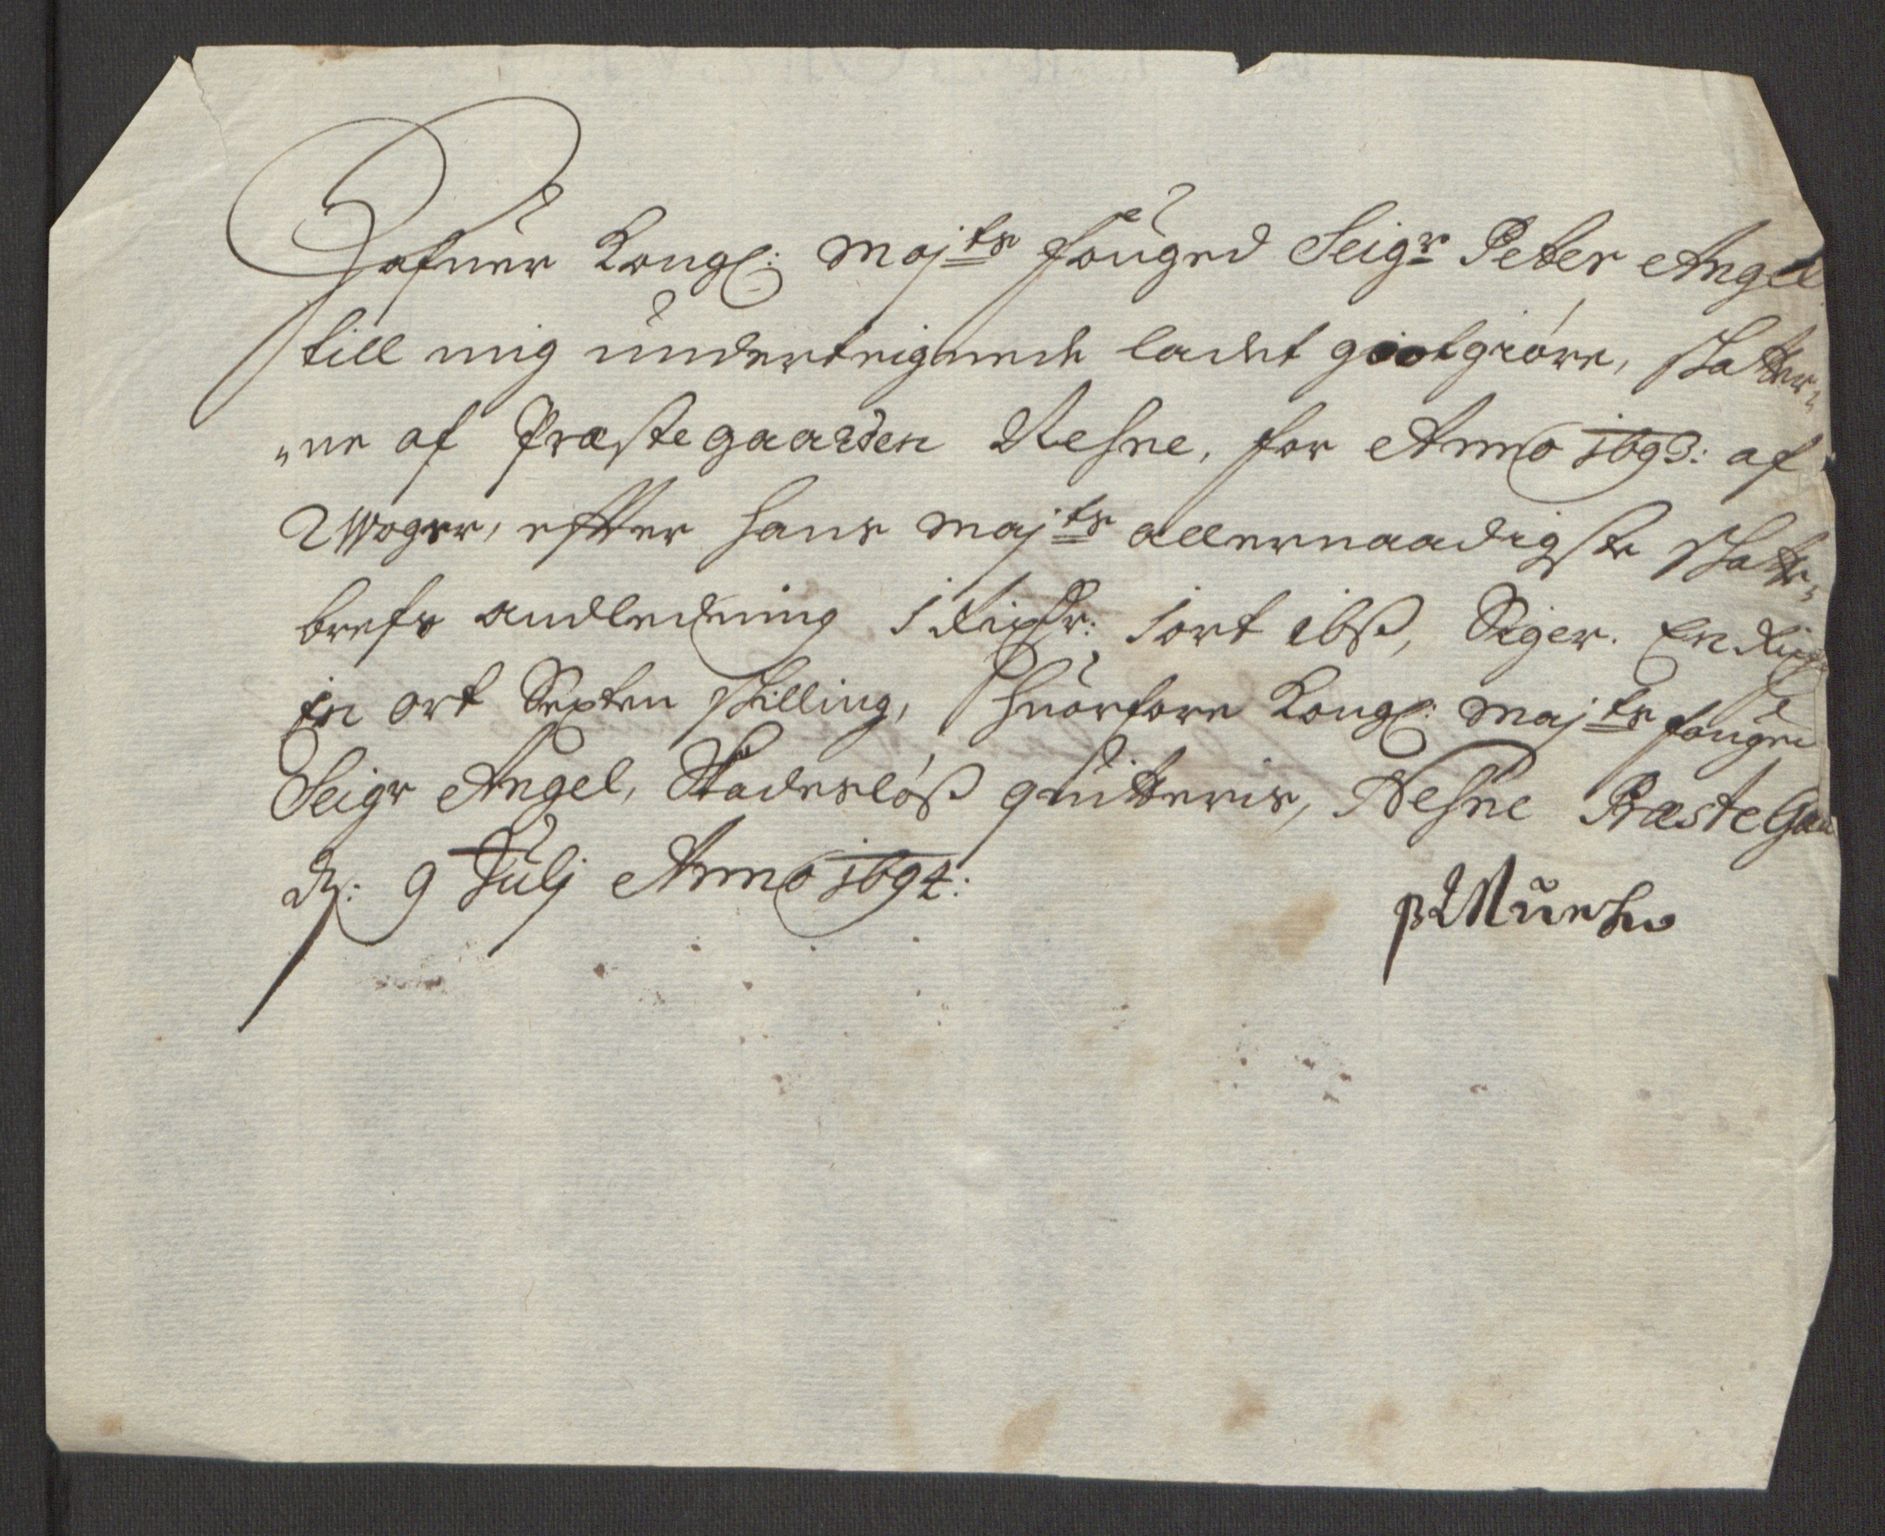 Hafuer Kongl: Maj:ts fouged Seigr Peter Angel
till mig underteignede ladet gootgiøre, schatter-
-ne af Præstegaarden Nesne, for Anno 1693: af
2 Woger, effter hans Maj:ts allernaadigste schatte-
brefs andledning 1 Rixdr: 1 ort 16ß, Siger. En Rix
En ort Sexten schilling, Huorfore Kongl: Maj:ts fouged
Seigr Angel, Skadesløß quitteris, Nesne PræsteGaa
d: 9 Julj Anno 1694: